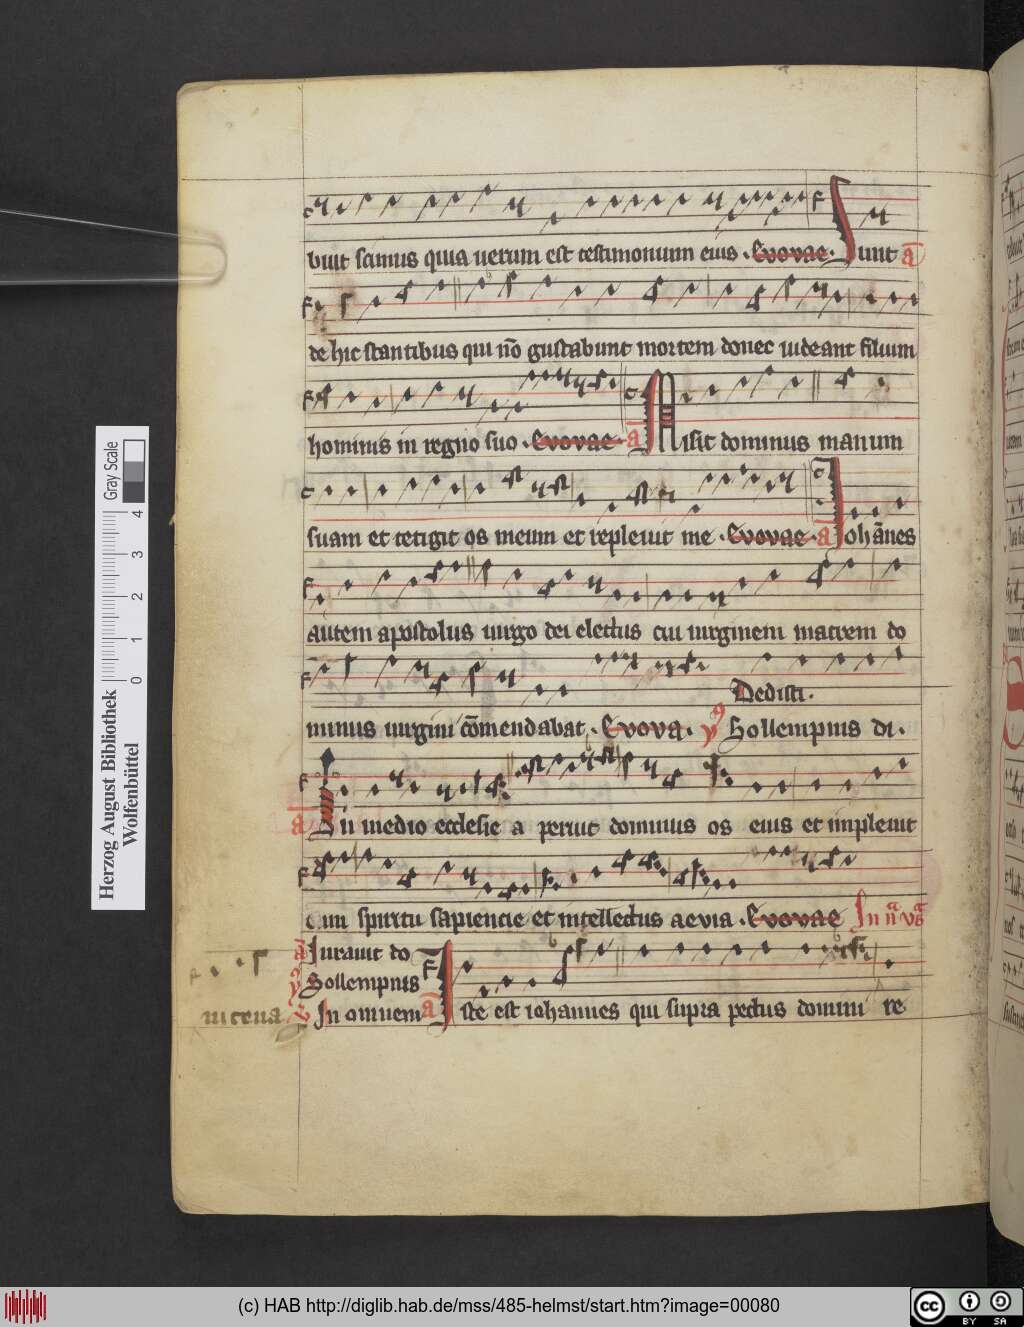 buit scimus quia uerum est testimonium eius. Evovae. Sunt a
de hic stantibus qui nō gustabunt mortem donec uideant filium
hominis in regno suo. Evovae. a Misit dominus manum
suam et tetigit os meum et repleuit me. Evovae. a Johānes
autem apostolus uirgo dei electus cui uirginem matrem do
Dedisti.
minus uirgini cōmendabat. Evova. Sollempnis di.
a In medio ecclesie a peruit dominus os eius et impleuit
eum spiritu sapiencie et intellectus aevia. Evovae In
Iurauit do
Sollempnis
In omnem a Iste est iohannes qui supra pectus domini re
in cena
Herzog August Bibliothek
Wolfenbüttel
0 1 2 3 4
Gray Scale
(c) HAB http://diglib.hab.de/mss/485-helmst/start.htm?image=00080
cc BY SA